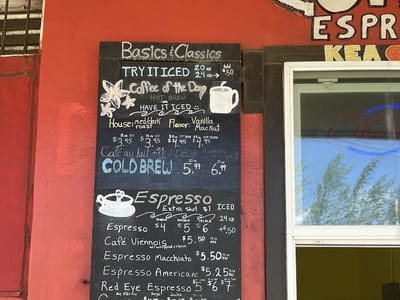 ESPR
KEA
Basics & Classics
TRY IT ICED 20 oz 24 oz → .50
Coffee of the Day
HOT BREW
HAVE IT ICED
House: med/dark roast Flavor: Vanilla Mac Nut
$3. $3.95 $4. $4.95
Café au lait +$1
COLD BREW 5.99 6.99
Espresso
Extra shot $1 ICED
24 oz
Espresso $4 $5 $6 +$.50
Café Viennois $5.50
Espresso Macchiato $5.50
Espresso Americano $5.25
Red Eye Espresso 5 6 7